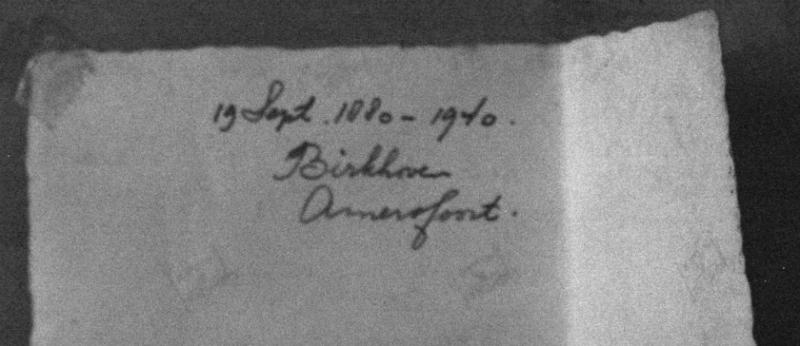 19 Sept. 1880 - 1940.
Birkhoven
Amersfoort.